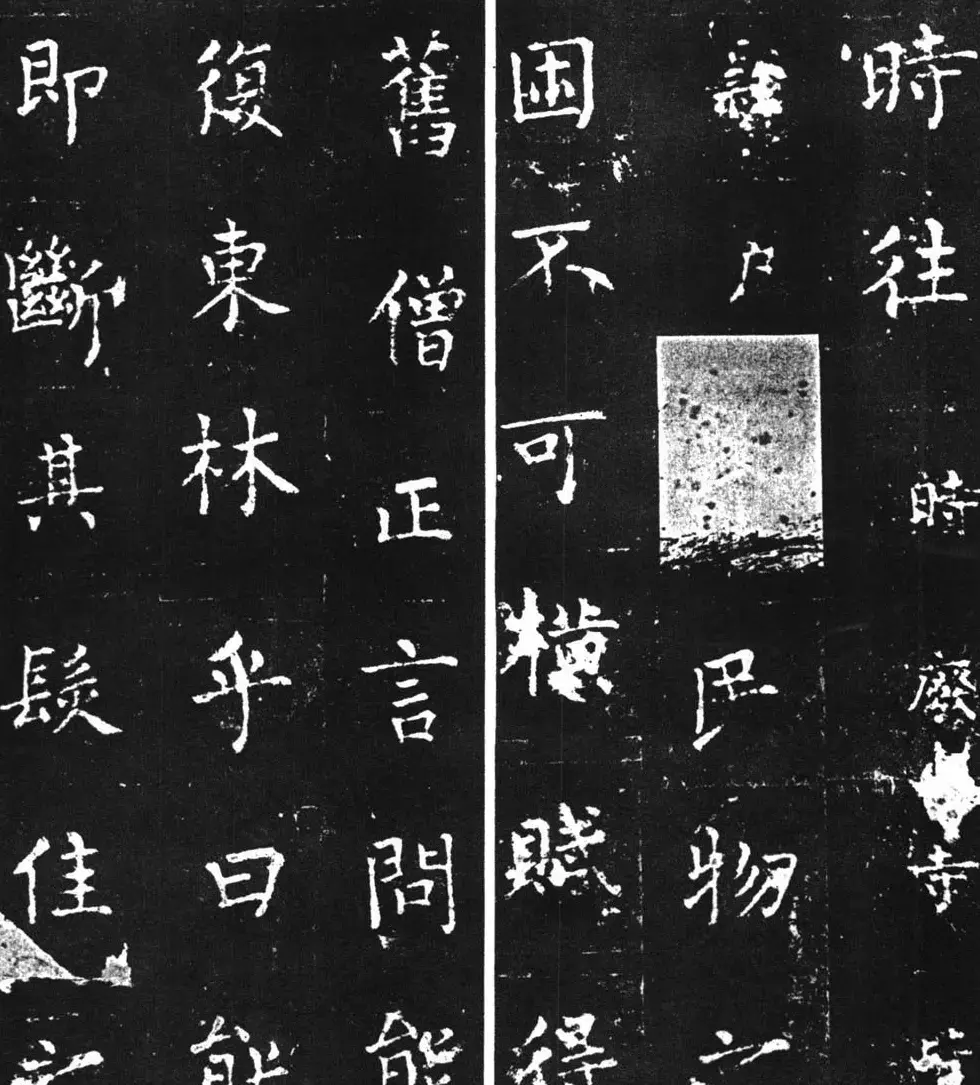 時往時廢寺
物
困不可橫賦得
舊僧正言問能
復東林乎曰能
即斷其髮住